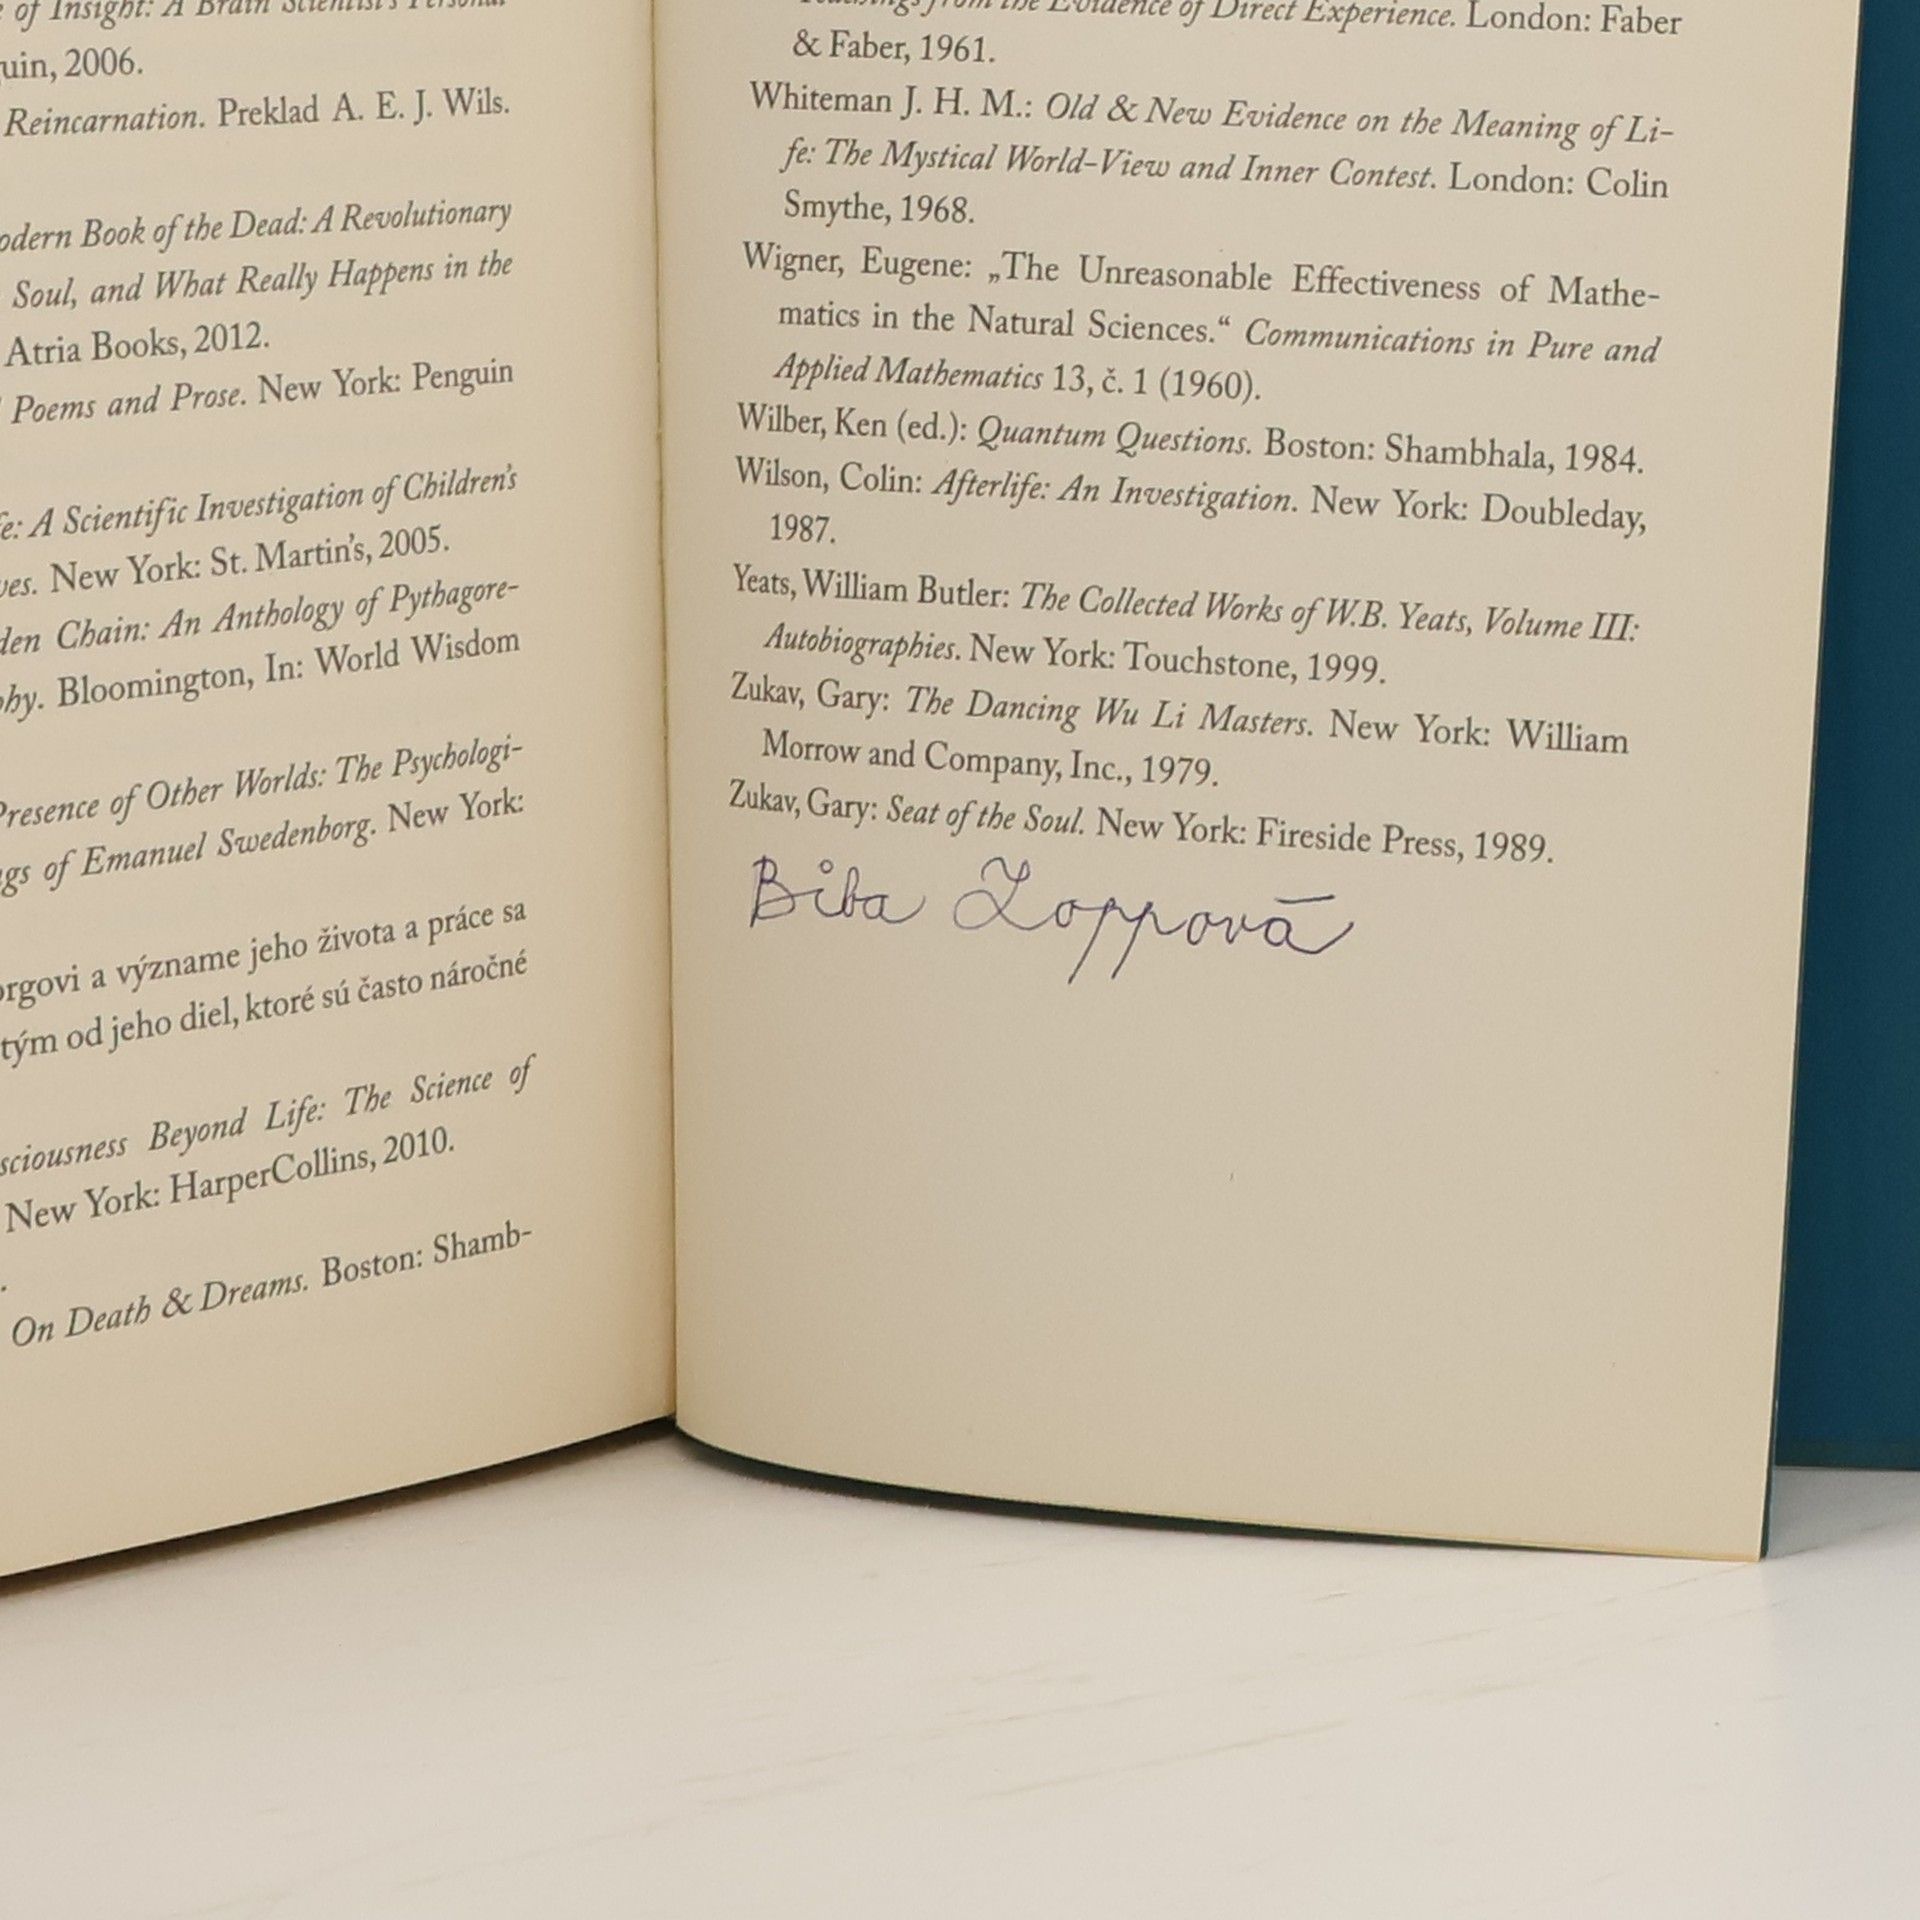 of Insight: A Brain Scientist's Personal
uin, 2006.
Reincarnation. Preklad A. E. J. Wils.
odern Book of the Dead: A Revolutionary
Soul, and What Really Happens in the
Atria Books, 2012.
Poems and Prose. New York: Penguin
fe: A Scientific Investigation of Children's
ves. New York: St. Martin's, 2005.
den Chain: An Anthology of Pythagore-
phy. Bloomington, In: World Wisdom
Presence of Other Worlds: The Psychologi-
ngs of Emanuel Swedenborg. New York:
orgovi a význame jeho života a práce sa
tým od jeho diel, ktoré sú často náročné
sciousness Beyond Life: The Science of
New York: HarperCollins, 2010.
On Death & Dreams. Boston: Shamb-
Teachings from the Evidence of Direct Experience. London: Faber
& Faber, 1961.
Whiteman J. H. M.: Old & New Evidence on the Meaning of Li-
fe: The Mystical World-View and Inner Contest. London: Colin
Smythe, 1968.
Wigner, Eugene: „The Unreasonable Effectiveness of Mathe-
matics in the Natural Sciences.“ Communications in Pure and
Applied Mathematics 13, č. 1 (1960).
Wilber, Ken (ed.): Quantum Questions. Boston: Shambhala, 1984.
Wilson, Colin: Afterlife: An Investigation. New York: Doubleday,
1987.
Yeats, William Butler: The Collected Works of W.B. Yeats, Volume III:
Autobiographies. New York: Touchstone, 1999.
Zukav, Gary: The Dancing Wu Li Masters. New York: William
Morrow and Company, Inc., 1979.
Zukav, Gary: Seat of the Soul. New York: Fireside Press, 1989.
Biba